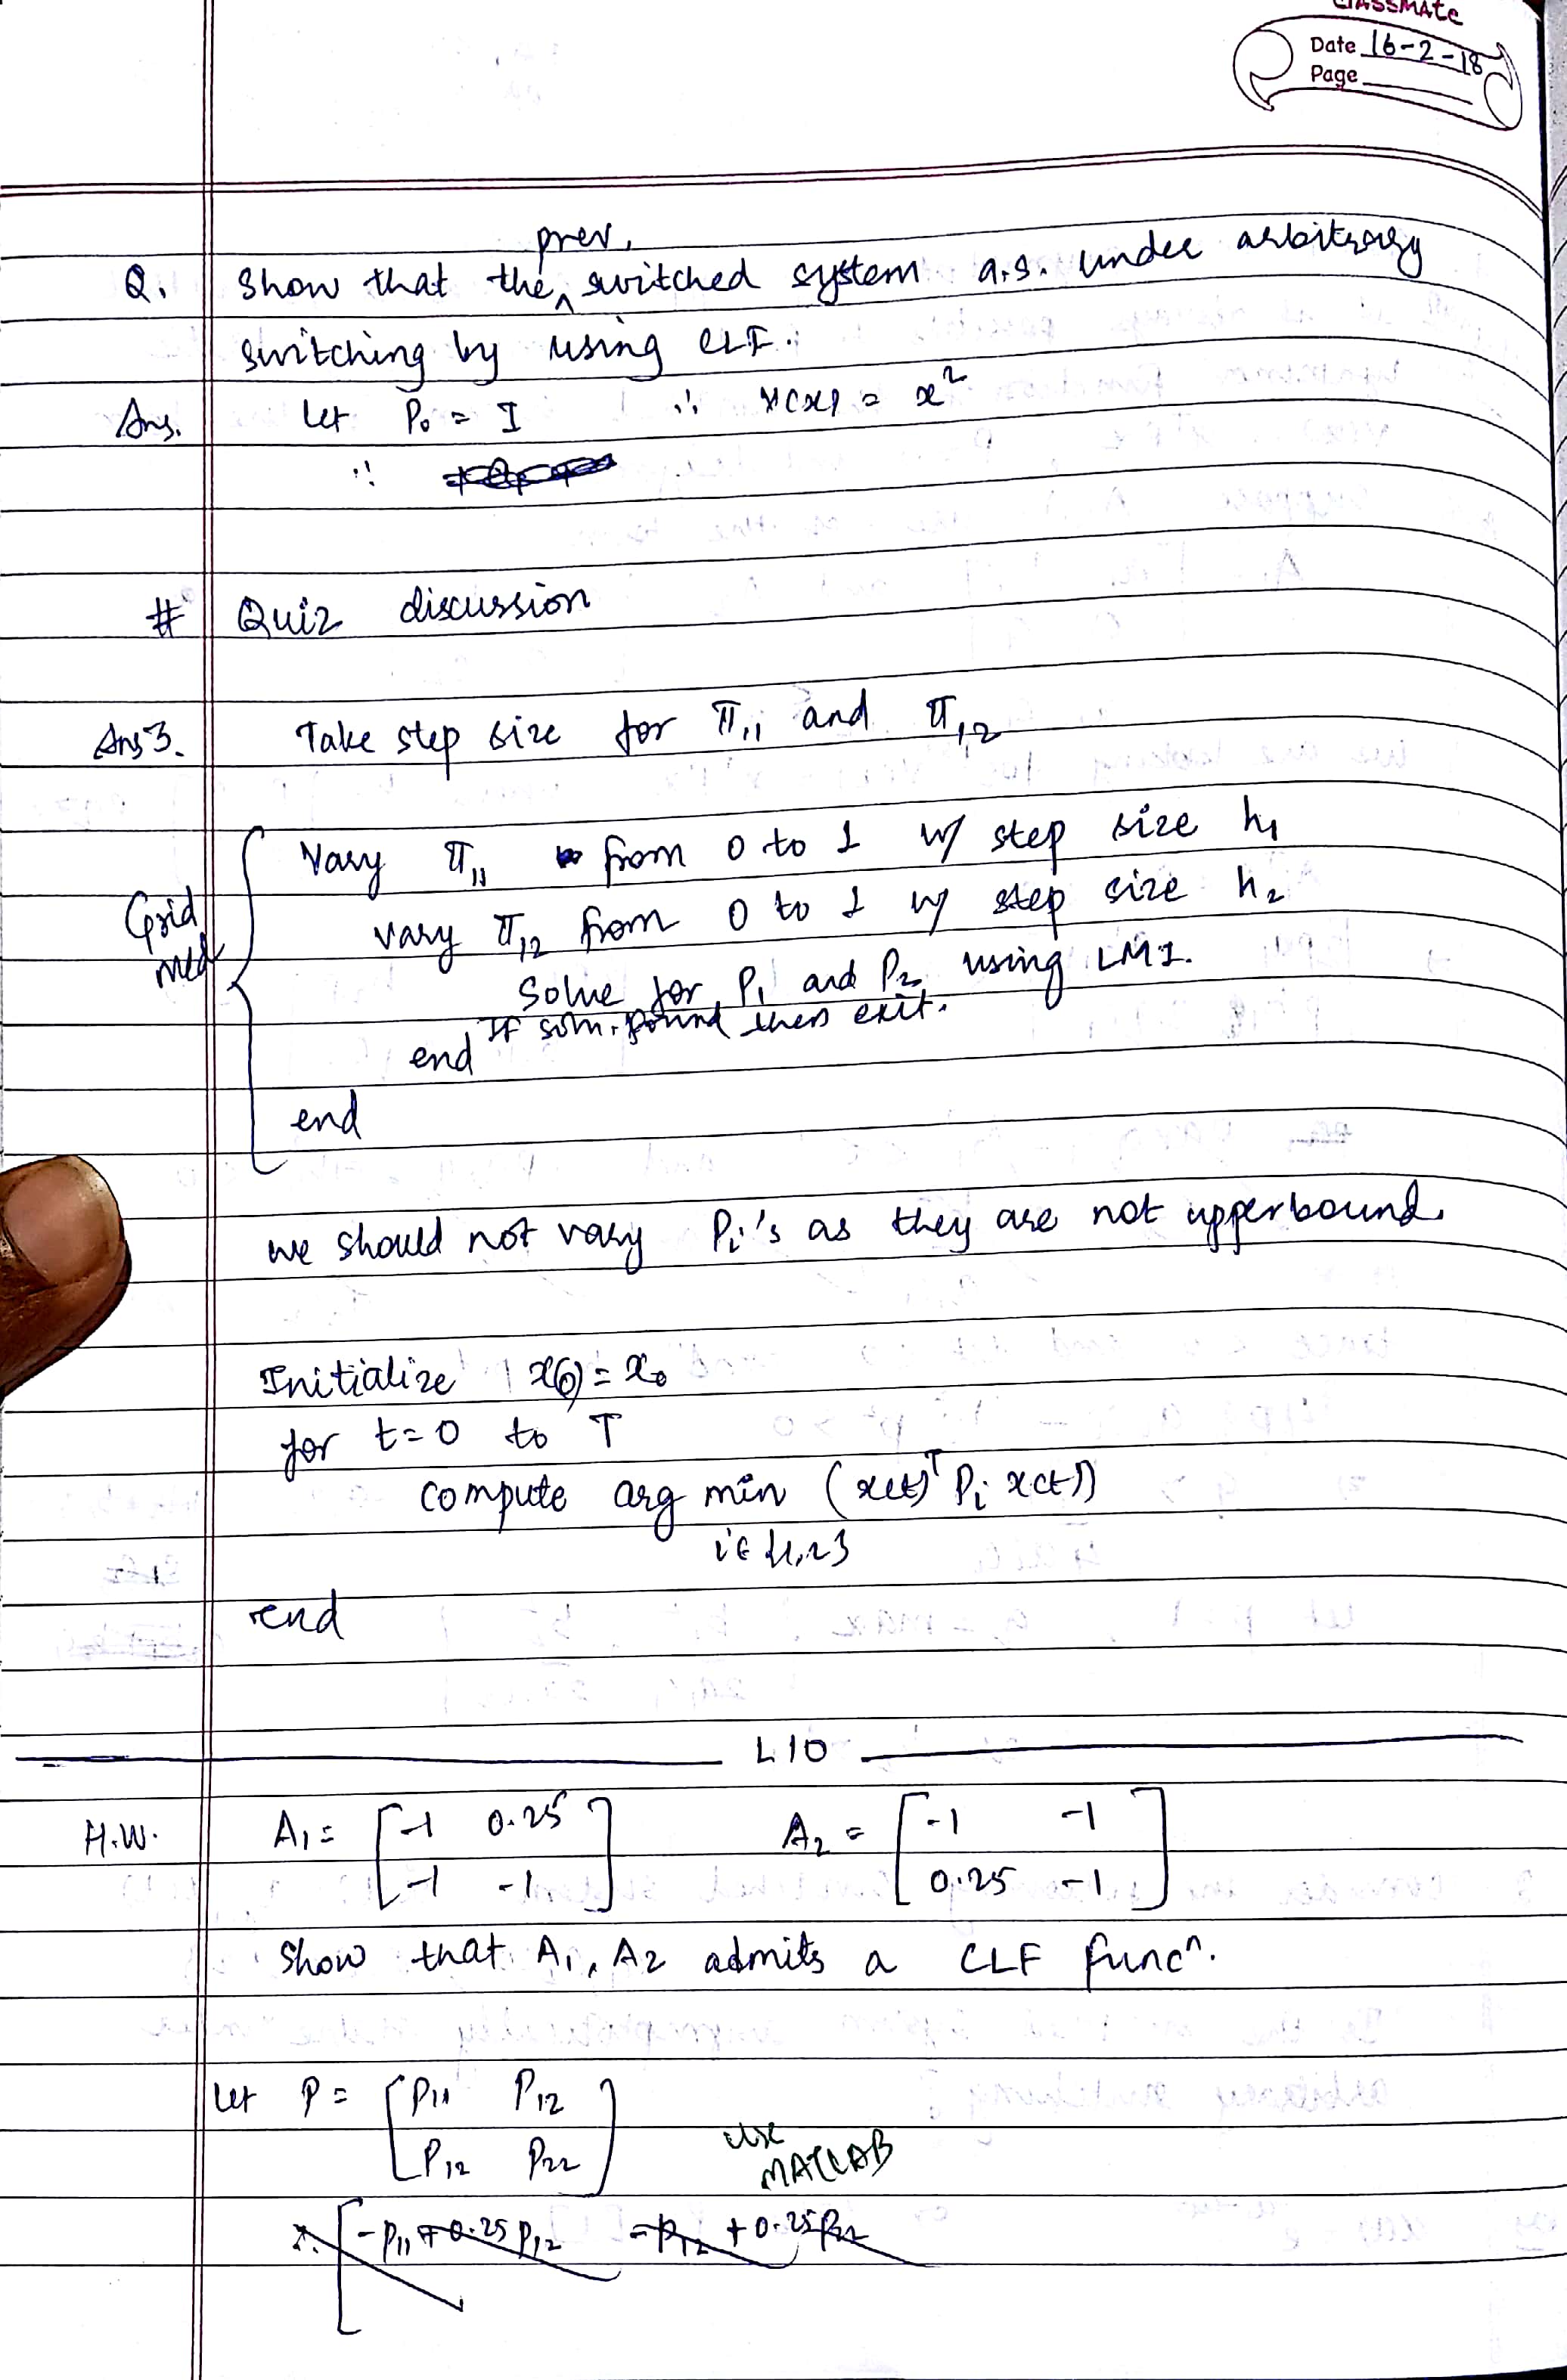 classmate
Date 16-2-18
Page
prev.
Q. Show that the ^ switched system a.s. under arbitrary
switching by using CLF.
Ans. Let P₀ = I ∴ V(x) = x²
∴
# Quiz discussion
Ans 3. Take step size for π₁₁ and π₁₂
Vary π₁₁ from 0 to 1 w/ step size h₁
vary π₁₂ from 0 to 1 w/ step size h₂
Grid
Solve for P₁ and P₂ using LMI.
If soln. found then exit.
end
end
we should not vary Pᵢ's as they are not upperbound.
Initialize x(0) = x₀
for t=0 to T
compute arg min (x(t)ᵀ Pᵢ x(t))
i∈{1,2}
end
L10
H.W. A₁ = [-1 0.25 A₂ = [-1 -1
-1 -1] 0.25 -1]
Show that A₁, A₂ admits a CLF funcⁿ.
Let P = [P₁₁ P₁₂
P₁₂ P₂₂]
use
MATLAB
∴ [-P₁₁+0.25P₁₂ -P₁₂+0.25P₂₂